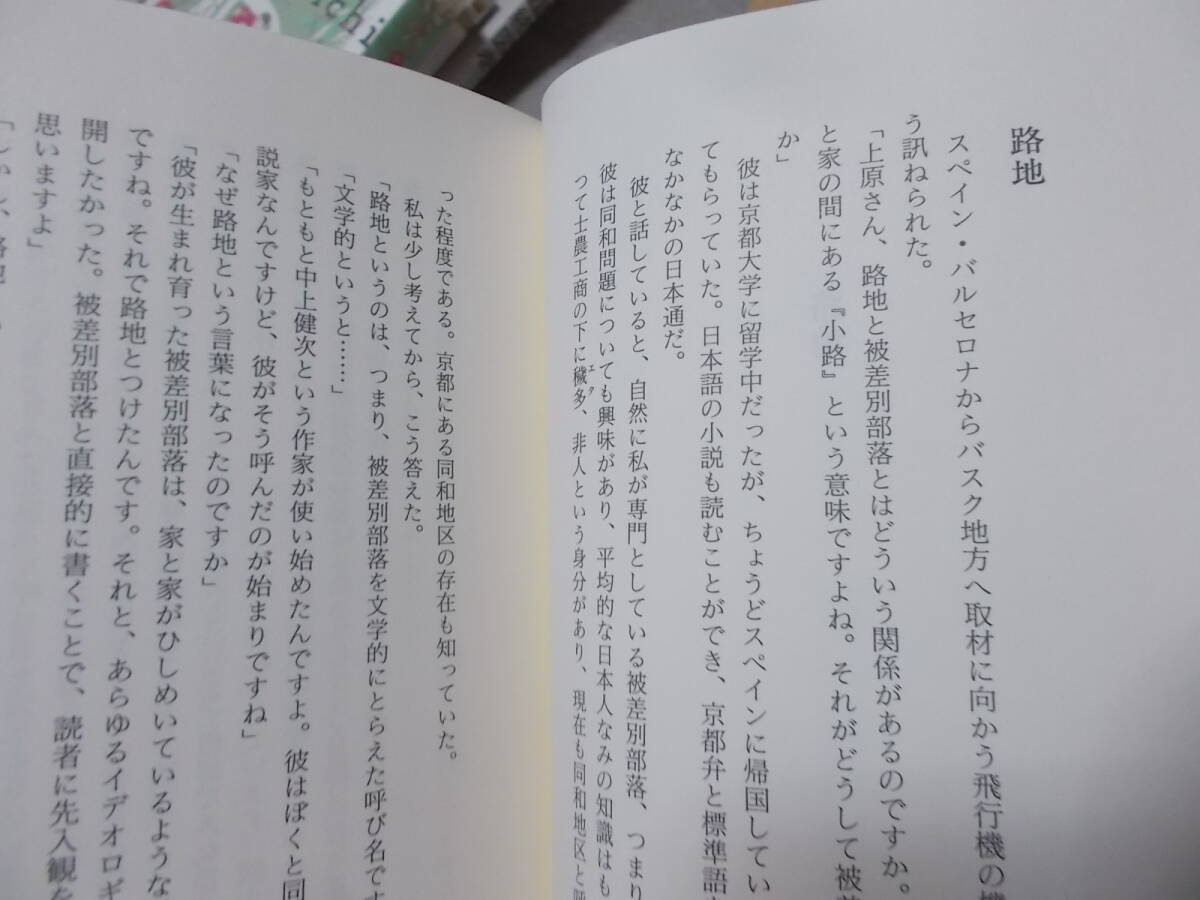 ichi
路地
スペイン・バルセロナからバスク地方へ取材に向かう飛行機の
う訊ねられた。
「上原さん、路地と被差別部落とはどういう関係があるのですか。
と家の間にある『小路』という意味ですよね。それがどうして被
か」
彼は京都大学に留学中だったが、ちょうどスペインに帰国してい
てもらっていた。日本語の小説も読むことができ、京都弁と標準語
なかなかの日本通だ。
彼と話していると、自然に私が専門としている被差別部落、つまり
彼は同和問題についても興味があり、平均的な日本人なみの知識はも
つて士農工商の下に穢多、非人という身分があり、現在も同和地区と
エタ
った程度である。京都にある同和地区の存在も知っていた。
私は少し考えてから、こう答えた。
「路地というのは、つまり、被差別部落を文学的にとらえた呼び名です
「文学的というと……」
「もともと中上健次という作家が使い始めたんですよ。彼はぼくと同
説家なんですけど、彼がそう呼んだのが始まりですね」
「なぜ路地という言葉になったのですか」
「彼が生まれ育った被差別部落は、家と家がひしめいているような
ですね。それで路地とつけたんです。それと、あらゆるイデオロギ
開したかった。被差別部落と直接的に書くことで、読者に先入観を
思いますよ」